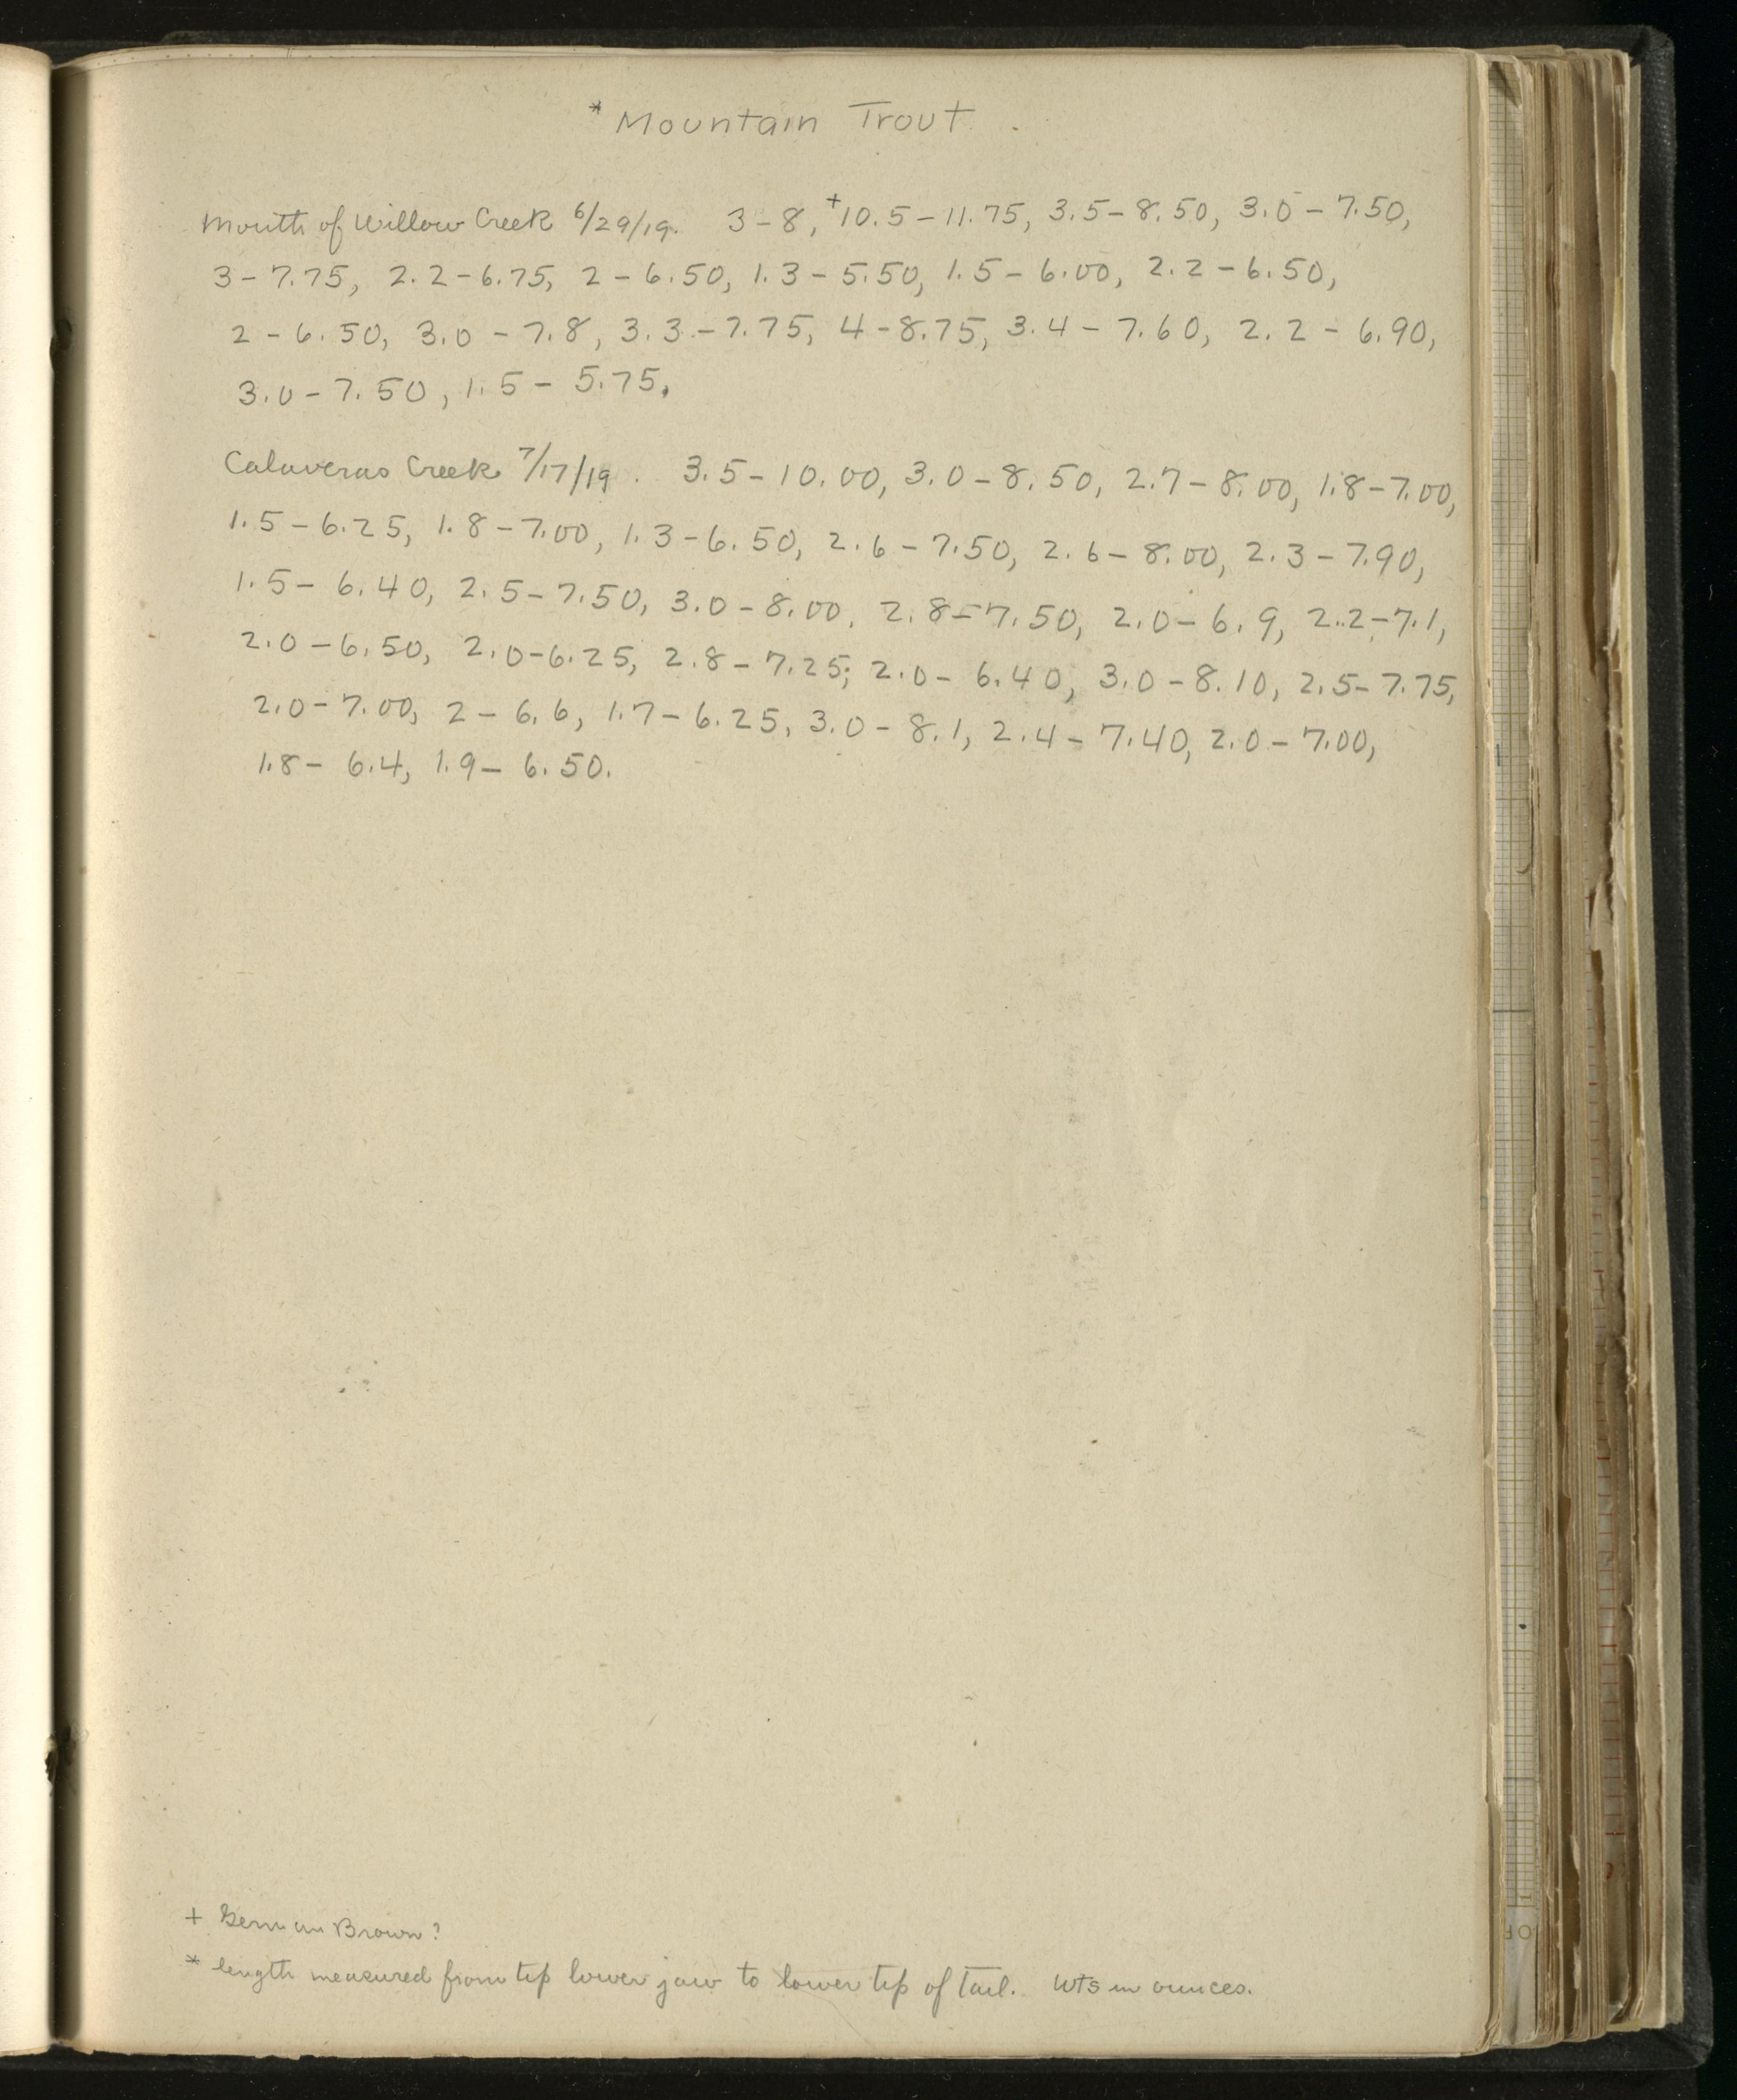 * Mountain Trout.
Mouth of Willow Creek 6/29/19. 3-8, +10.5-11.75, 3.5-8.50, 3.0-7.50,
3-7.75, 2.2-6.75, 2-6.50, 1.3-5.50, 1.5-6.00, 2.2-6.50,
2-6.50, 3.0-7.8, 3.3-7.75, 4-8.75, 3.4-7.60, 2.2-6.90,
3.0-7.50, 1.5-5.75.
Calaveras Creek 7/17/19. 3.5-10.00, 3.0-8.50, 2.7-8.00, 1.8-7.00,
1.5-6.25, 1.8-7.00, 1.3-6.50, 2.6-7.50, 2.6-8.00, 2.3-7.90,
1.5-6.40, 2.5-7.50, 3.0-8.00, 2.8-7.50, 2.0-6.9, 2.2-7.1,
2.0-6.50, 2.0-6.25, 2.8-7.25; 2.0-6.40, 3.0-8.10, 2.5-7.75,
2.0-7.00, 2-6.6, 1.7-6.25, 3.0-8.1, 2.4-7.40, 2.0-7.00,
1.8-6.4, 1.9-6.50.
+ German Brown?
* length measured from tip lower jaw to lower tip of tail. Wts in ounces.